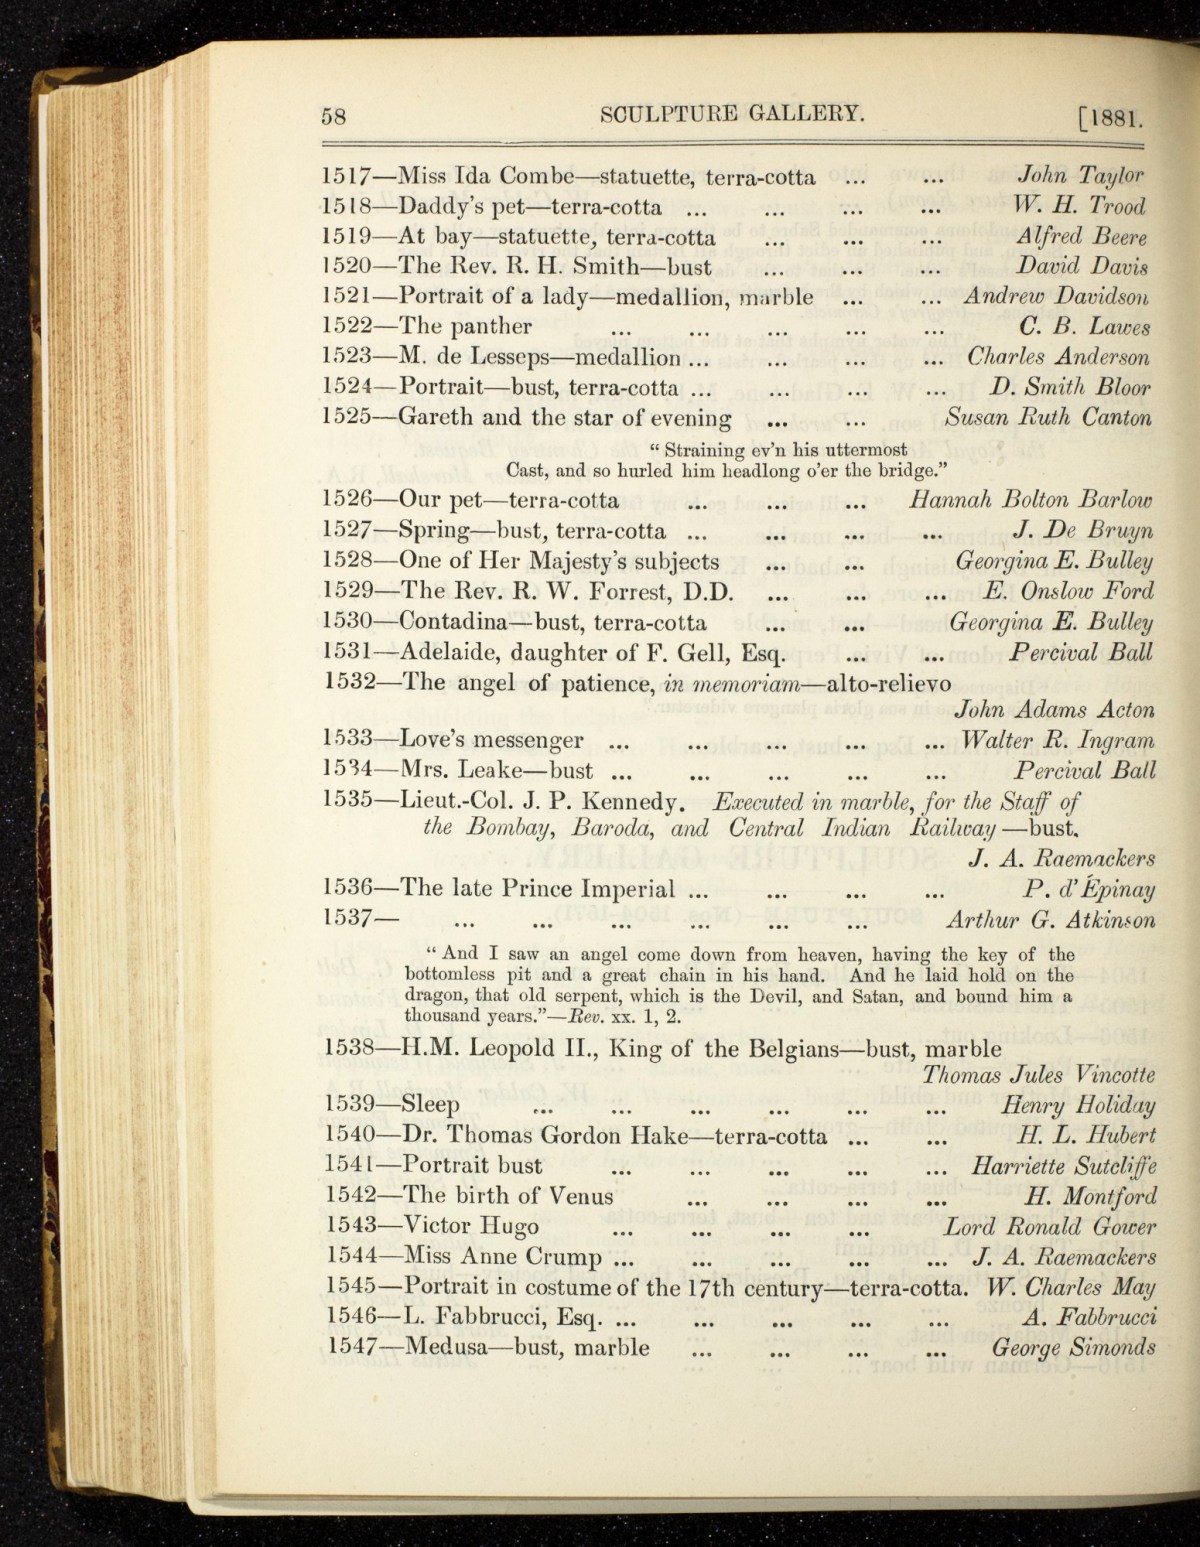 58 SCULPTURE GALLERY. [1881.
1517—Miss Ida Combe—statuette, terra-cotta ... ... John Taylor
1518—Daddy's pet—terra-cotta ... ... ... ... W. H. Trood
1519—At bay—statuette, terra-cotta ... ... ... Alfred Beere
1520—The Rev. R. H. Smith—bust ... ... ... David Davis
1521—Portrait of a lady—medallion, marble ... ... Andrew Davidson
1522—The panther ... ... ... ... ... C. B. Lawes
1523—M. de Lesseps—medallion ... ... ... ... Charles Anderson
1524—Portrait—bust, terra-cotta ... ... ... ... D. Smith Bloor
1525—Gareth and the star of evening ... ... Susan Ruth Canton
" Straining ev'n his uttermost
Cast, and so hurled him headlong o'er the bridge."
1526—Our pet—terra-cotta ... ... ... Hannah Bolton Barlow
1527—Spring—bust, terra-cotta ... ... ... ... J. De Bruyn
1528—One of Her Majesty's subjects ... ... Georgina E. Bulley
1529—The Rev. R. W. Forrest, D.D. ... ... ... E. Onslow Ford
1530—Contadina—bust, terra-cotta ... ... Georgina E. Bulley
1531—Adelaide, daughter of F. Gell, Esq. ... ... Percival Ball
1532—The angel of patience, in memoriam—alto-relievo
John Adams Acton
1533—Love's messenger ... ... ... ... ... Walter R. Ingram
1534—Mrs. Leake—bust ... ... ... ... ... Percival Ball
1535—Lieut.-Col. J. P. Kennedy. Executed in marble, for the Staff of
the Bombay, Baroda, and Central Indian Railway—bust.
J. A. Raemackers
1536—The late Prince Imperial ... ... ... ... P. d'Épinay
1537— ... ... ... ... ... ... Arthur G. Atkinson
" And I saw an angel come down from heaven, having the key of the
bottomless pit and a great chain in his hand. And he laid hold on the
dragon, that old serpent, which is the Devil, and Satan, and bound him a
thousand years."—Rev. xx. 1, 2.
1538—H.M. Leopold II., King of the Belgians—bust, marble
Thomas Jules Vincotte
1539—Sleep ... ... ... ... ... ... Henry Holiday
1540—Dr. Thomas Gordon Hake—terra-cotta ... ... H. L. Hubert
1541—Portrait bust ... ... ... ... ... Harriette Sutcliffe
1542—The birth of Venus ... ... ... ... H. Montford
1543—Victor Hugo ... ... ... ... Lord Ronald Gower
1544—Miss Anne Crump ... ... ... ... ... J. A. Raemackers
1545—Portrait in costume of the 17th century—terra-cotta. W. Charles May
1546—L. Fabbrucci, Esq. ... ... ... ... ... A. Fabbrucci
1547—Medusa—bust, marble ... ... ... ... George Simonds